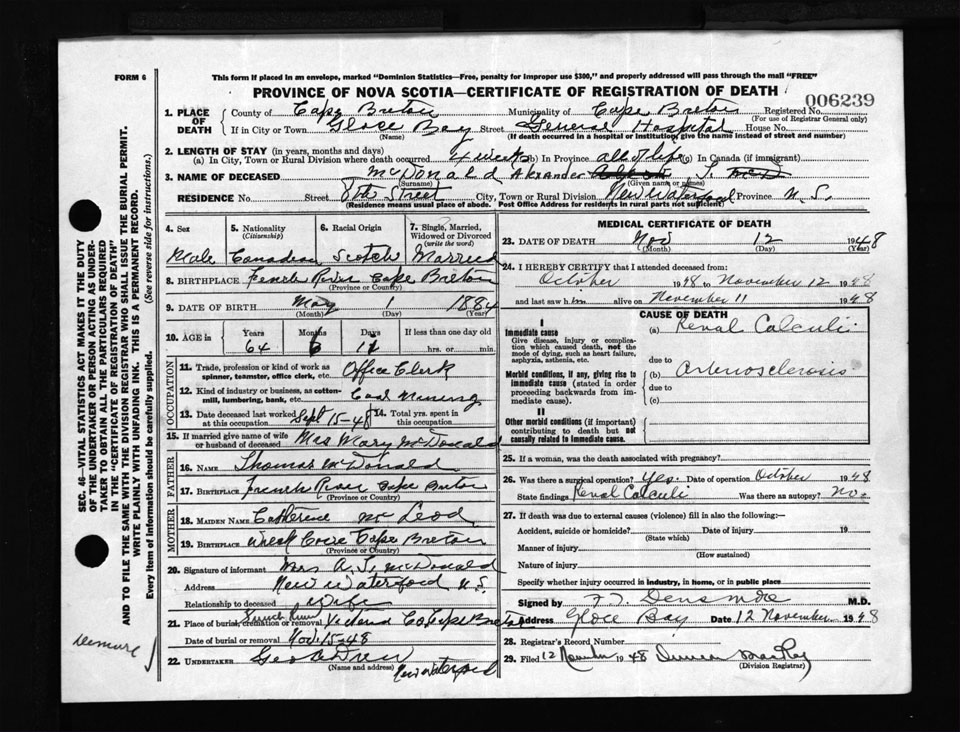 FORM 6
This form if placed in an envelope, marked "Dominion Statistics—Free, penalty for improper use $300," and properly addressed will pass through the mail "FREE"
PROVINCE OF NOVA SCOTIA—CERTIFICATE OF REGISTRATION OF DEATH
006239
1. PLACE OF DEATH County of Cape Breton Municipality of Cape Breton Registered No.
(For use of Registrar General only)
If in City or Town Glace Bay Street General Hospital House No.
(Name) (If death occurred in a hospital or institution, give the name instead of street and number)
2. LENGTH OF STAY (in years, months and days)
(a) In City, Town or Rural Division where death occurred 4 weeks (b) In Province all of life (c) In Canada (if immigrant)
3. NAME OF DECEASED McDonald Alexander J.
(Surname) (Given name or names)
RESIDENCE No. Street 8th Street City, Town or Rural Division New Waterford Province N.S.
(Residence means usual place of abode. Post Office Address for residents in rural parts not sufficient)
4. Sex 5. Nationality (Citizenship) 6. Racial Origin 7. Single, Married, Widowed or Divorced (write the word)
Male Canadian Scotch Married
8. BIRTHPLACE French River Cape Breton
(Province or Country)
9. DATE OF BIRTH May 1 1884
(Month) (Day) (Year)
10. AGE in Years Months Days If less than one day old
64 6 11 hrs. or min.
OCCUPATION
11. Trade, profession or kind of work as spinner, teamster, office clerk, etc. Office Clerk
12. Kind of industry or business, as cotton-mill, lumbering, bank, etc. Coal Mining
13. Date deceased last worked at this occupation Sept 15-48 14. Total yrs. spent in this occupation
15. If married give name of wife or husband of deceased Mrs Mary McDonald
FATHER
16. NAME Thomas McDonald
17. BIRTHPLACE French River Cape Breton
MOTHER
18. MAIDEN NAME Catherine McLeod
19. BIRTHPLACE Wreck Cove Cape Breton
(Province or Country)
20. Signature of informant Mrs A. J. McDonald
Address New Waterford N.S.
Relationship to deceased Wife
21. Place of burial, cremation or removal French River Victoria Co Cape Breton
Date of burial or removal Nov. 15-48
22. UNDERTAKER Geo
(Name and address) New Waterford
MEDICAL CERTIFICATE OF DEATH
23. DATE OF DEATH Nov 12 1948
(Month) (Day) (Year)
24. I HEREBY CERTIFY that I attended deceased from:
October 1948 to November 12 1948
and last saw him alive on November 11 1948
CAUSE OF DEATH
I
Immediate cause (a) Renal Calculi
Give disease, injury or complication which caused death, not the mode of dying, such as heart failure, asphyxia, asthenia, etc.
due to
Morbid conditions, if any, giving rise to immediate cause (stated in order proceeding backwards from immediate cause).
(b) Arteriosclerosis
due to
(c)
II
Other morbid conditions (if important) contributing to death but not causally related to immediate cause.
25. If a woman, was the death associated with pregnancy?
26. Was there a surgical operation? Yes. Date of operation October 1948
State findings Renal Calculi Was there an autopsy? No.
27. If death was due to external causes (violence) fill in also the following:—
Accident, suicide or homicide? Date of injury 19
(State which)
Manner of injury
(How sustained)
Nature of injury
Specify whether injury occurred in industry, in home, or in public place
Signed by Densmore M.D.
Address Glace Bay Date 12 November 1948
28. Registrar's Record Number
29. Filed 12 November 1948
(Division Registrar)
SEC. 46—VITAL STATISTICS ACT MAKES IT THE DUTY
OF THE UNDERTAKER OR PERSON ACTING AS UNDER-
TAKER TO OBTAIN ALL THE PARTICULARS REQUIRED
IN THE "CERTIFICATE OF REGISTRATION OF DEATH"
AND TO FILE THE SAME WITH THE DIVISION REGISTRAR WHO SHALL ISSUE THE BURIAL PERMIT.
WRITE PLAINLY WITH UNFADING INK. THIS IS A PERMANENT RECORD.
Every item of information should be carefully supplied. (See reverse side for instructions.)